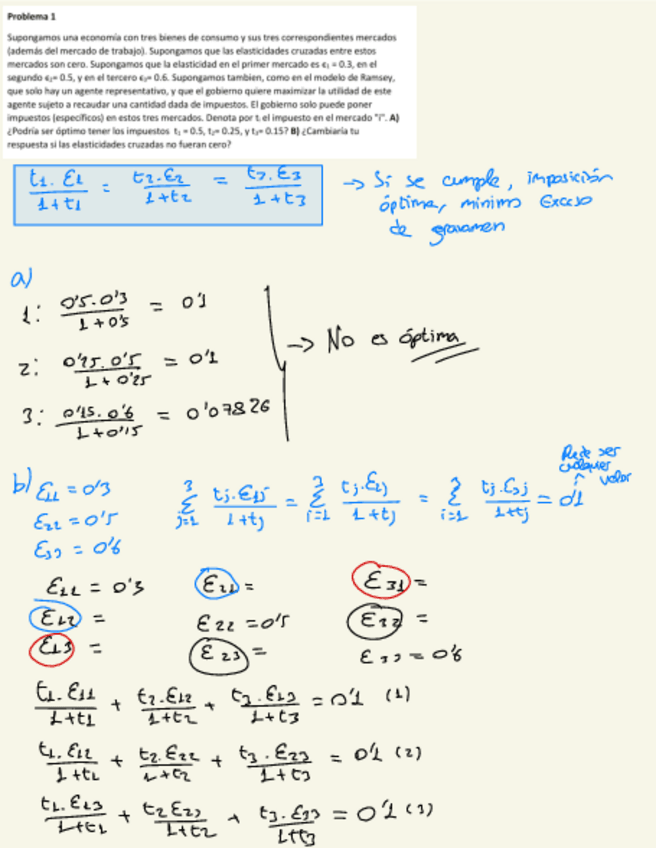 Problema 1
Supongamos una economía con tres bienes de consumo y sus tres correspondientes mercados
(además del mercado de trabajo). Supongamos que las elasticidades cruzadas entre estos
mercados son cero. Supongamos que la elasticidad en el primer mercado es ϵ₁ = 0.3, en el
segundo ϵ₂= 0.5, y en el tercero ϵ₃= 0.6. Supongamos tambien, como en el modelo de Ramsey,
que solo hay un agente representativo, y que el gobierno quiere maximizar la utilidad de este
agente sujeto a recaudar una cantidad dada de impuestos. El gobierno solo puede poner
impuestos (específicos) en estos tres mercados. Denota por tᵢ el impuesto en el mercado "i". A)
¿Podría ser óptimo tener los impuestos t₁ = 0.5, t₂= 0.25, y t₃= 0.15? B) ¿Cambiaría tu
respuesta si las elasticidades cruzadas no fueran cero?
t₁.Ɛ₁/1+t₁ = t₂.Ɛ₂/1+t₂ = t₃.Ɛ₃/1+t₃ → Si se cumple, imposición
óptima, mínimo exceso
de gravamen
a)
1: 0'5.0'3/1+0'5 = 0'1
2: 0'25.0'5/1+0'25 = 0'1 → No es óptima
3: 0'15.0'6/1+0'15 = 0'07826
Puede ser
cualquier
valor
b) Ɛ₁₁ = 0'3 3Σj=1 tj.Ɛ1j/1+tj = 3Σi=1 tj.Ɛ2j/1+tj = 3Σi=1 tj.Ɛ3j/1+tj = 0'1
Ɛ₂₂ = 0'5
Ɛ₃₃ = 0'6
Ɛ₁₁ = 0'3 Ɛ₂₁ = Ɛ₃₁ =
Ɛ₁₂ = Ɛ₂₂ = 0'5 Ɛ₃₂ =
Ɛ₁₃ = Ɛ₂₃ = Ɛ₃₃ = 0'6
t₁.Ɛ₁₁/1+t₁ + t₂.Ɛ₁₂/1+t₂ + t₃.Ɛ₁₃/1+t₃ = 0'1 (1)
t₁.Ɛ₁₂/1+t₁ + t₂.Ɛ₂₂/1+t₂ + t₃.Ɛ₂₃/1+t₃ = 0'1 (2)
t₁.Ɛ₁₃/1+t₁ + t₂Ɛ₂₃/1+t₂ + t₃.Ɛ₃₃/1+t₃ = 0'1 (3)